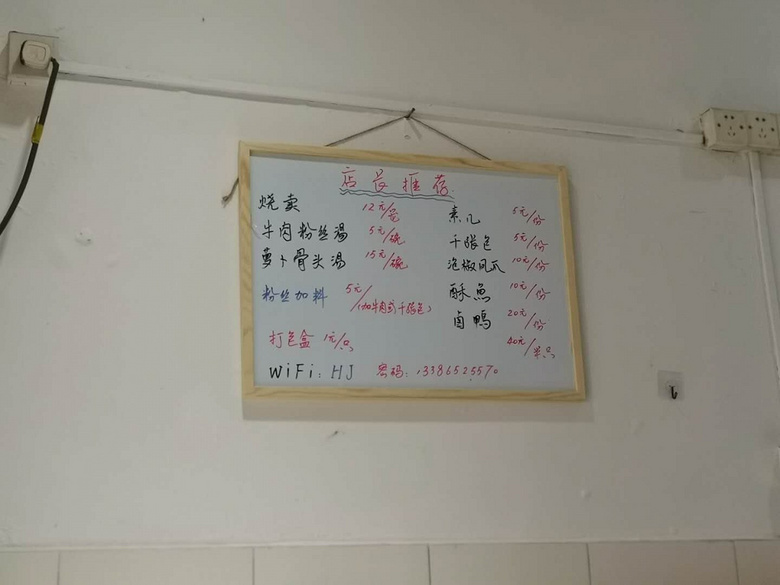 店长推荐
烧卖 12元/笼
牛肉粉丝湯 5元/碗
萝卜骨头湯 15元/碗
粉丝加料 5元/(加牛肉或千张包)
打包盒 1元/只
素几 5元/份
千张包 5元/份
泡椒凤爪 10元/份
酥魚 10元/份
卤鸭 20元/份
40元/半只
WiFi:HJ 密码:13386525570